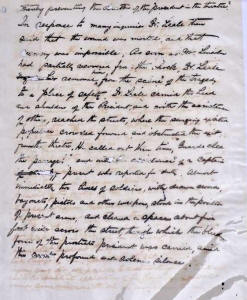 thereby preventing the death of the president in the theatre.
In response to many inquiries Dr. Leale then
said that the wound was mortal and that
recovery was impossible. As soon as Mr. Lincoln
had partially recovered from the shock, Dr. Leale
his removal from the scene of the tragedy
to a place of safety. Dr. Leale carried the head
and shoulders of the President and with the assistance
of others, reached the street, where the surging
populace crowded around and obstructed the
H. called out then "Guards clear
the passage!" and a Captain
present who reported for duty. Almost
immediately two lines of soldiers, with drawn swords,
bayonets, pistols and other weapons, stood in the position
of present arms, and cleared a space about five
feet wide across the street through which the
form of the prostrate president was carried amid
the most profound and solemn silence.